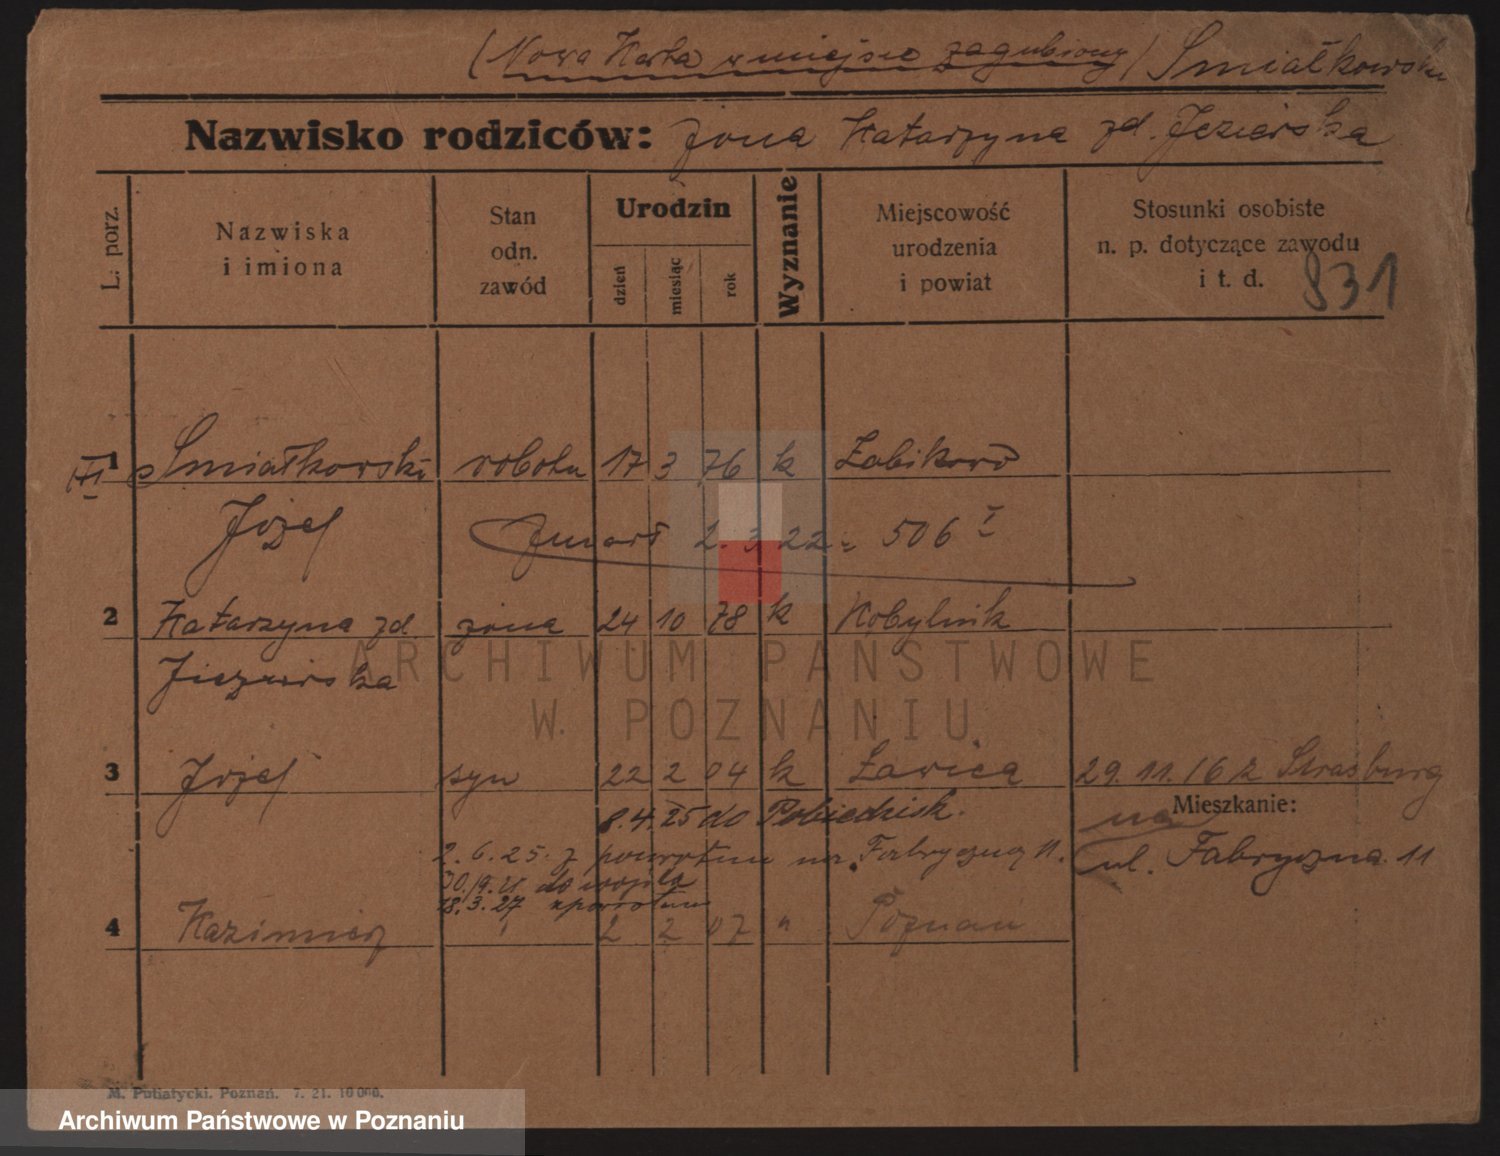 (Nowa Karta w miejsce zagubionej) Smiałkowski
Nazwisko rodziców: żona Katarzyna zd. Jezierska
L. porz.
Nazwiska
i imiona
Stan
odn.
zawód
Urodzin
dzień
miesiąc
rok
Wyznanie
Miejscowość
urodzenia
i powiat
Stosunki osobiste
n. p. dotyczące zawodu
i t. d.
831
1 Smiałkowski robotn 17 3 76 k Żabikowo
Józef zmarł 2. 3 22 506 I
2 Katarzyna zd żona 24 10 78 k Kobylnik
Jiezierska
3 Józef syn 22 2 04 k Ławica 29. 11. 16 z Strasburg
Mieszkanie:
8. 4. 25 do Pobiedzisk.
2. 6. 25. z powrotem na Fabryczną 11. ul. Fabryczna 11
do wojska
18. 3. 27 z powrotem
4 Kazimierz 2 2 07 " Poznań
M. Putiatycki. Poznań. 7. 21. 10 000.
ARCHIWUM PAŃSTWOWE
W POZNANIU
Archiwum Państwowe w Poznaniu